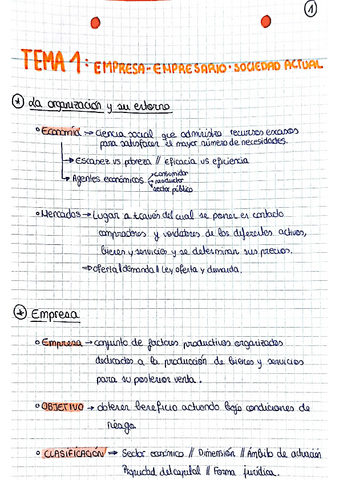 1
TEMA 1: EMPRESA-EMPRESARIO-SOCIEDAD ACTUAL
* La organización y su entorno
° Economía → ciencia social que administra recursos escasos
para satisfacer el mayor número de necesidades.
→ Escasez vs pobreza // eficacia vs eficiencia
→ Agentes económicos → consumidor
→ productor
→ sector público
° Mercados → Lugar a través del cual se ponen en contacto
compradores y vendedores de los diferentes activos,
bienes y servicios y se determinan sus precios.
→ oferta / demanda / Ley oferta y demanda.
* Empresa
° Empresa → conjunto de factores productivos organizados
dedicados a la producción de bienes y servicios
para su posterior venta.
° OBJETIVO → obtener beneficio actuando bajo condiciones de
riesgo
° CLASIFICACIÓN → Sector económico // Dimensión // Ámbito de actuación
Propiedad del capital // Forma jurídica.